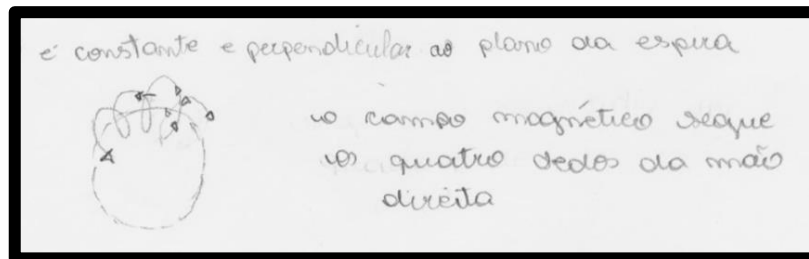 é constante e perpendicular ao plano da espira
o campo magnético segue
os quatro dedos da mão
direita